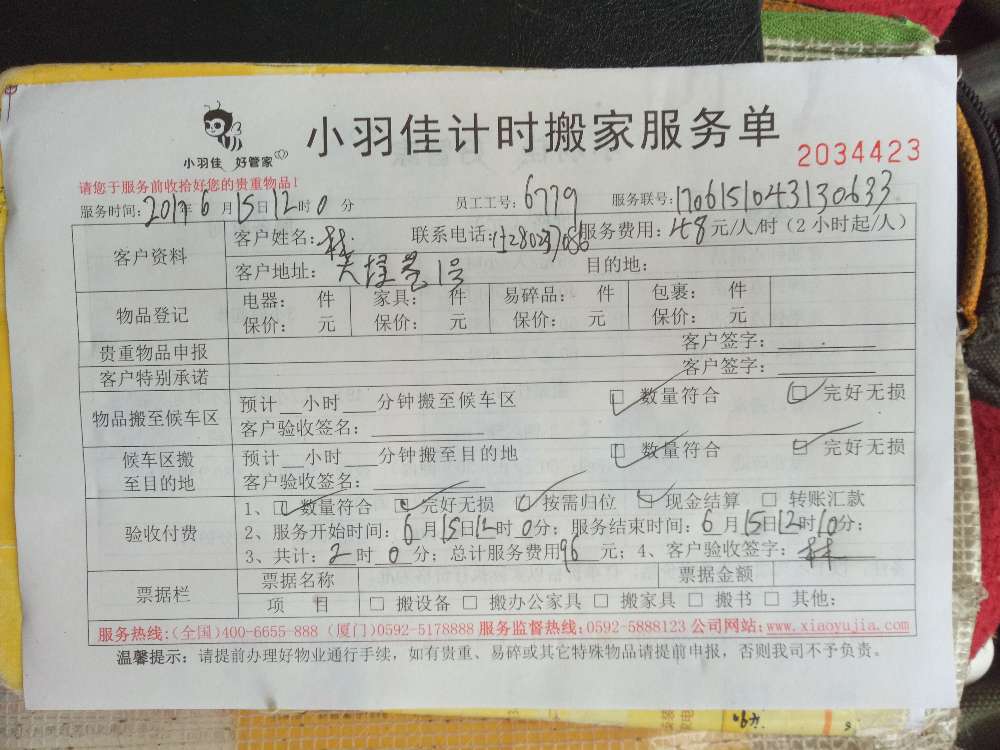 小羽佳计时搬家服务单
小羽佳 好管家
2034423
请您于服务前收拾好您的贵重物品!
服务时间:2017年6月15日12时0分 员工工号:6779 服务联号:1706151043130633
客户资料
客户姓名:林 联系电话: 服务费用:48元/人/时(2小时起/人)
客户地址: 1号 目的地:
物品登记
电器: 件 家具: 件 易碎品: 件 包裹: 件
保价: 元 保价: 元 保价: 元 保价: 元
贵重物品申报 客户签字:
客户特别承诺 客户签字:
物品搬至候车区
预计__小时___分钟搬至候车区 ☑ 数量符合 ☑ 完好无损
客户验收签名:
候车区搬至目的地
预计__小时___分钟搬至目的地 ☑ 数量符合 ☑ 完好无损
客户验收签名:
验收付费
1、☑ 数量符合 ☑ 完好无损 ☑ 按需归位 ☑ 现金结算 □ 转账汇款
2、服务开始时间:6月15日12时0分;服务结束时间:6月15日12时10分;
3、共计:2时0分;总计服务费用96元;4、客户验收签字:林
票据栏
票据名称 票据金额
项 目 □ 搬设备 □ 搬办公家具 □ 搬家具 □ 搬书 □ 其他:
服务热线:(全国)400-6655-888 (厦门)0592-5178888 服务监督热线:0592-5888123 公司网站:www.xiaoyujia.com
温馨提示:请提前办理好物业通行手续,如有贵重、易碎或其它特殊物品请提前申报,否则我司不予负责。